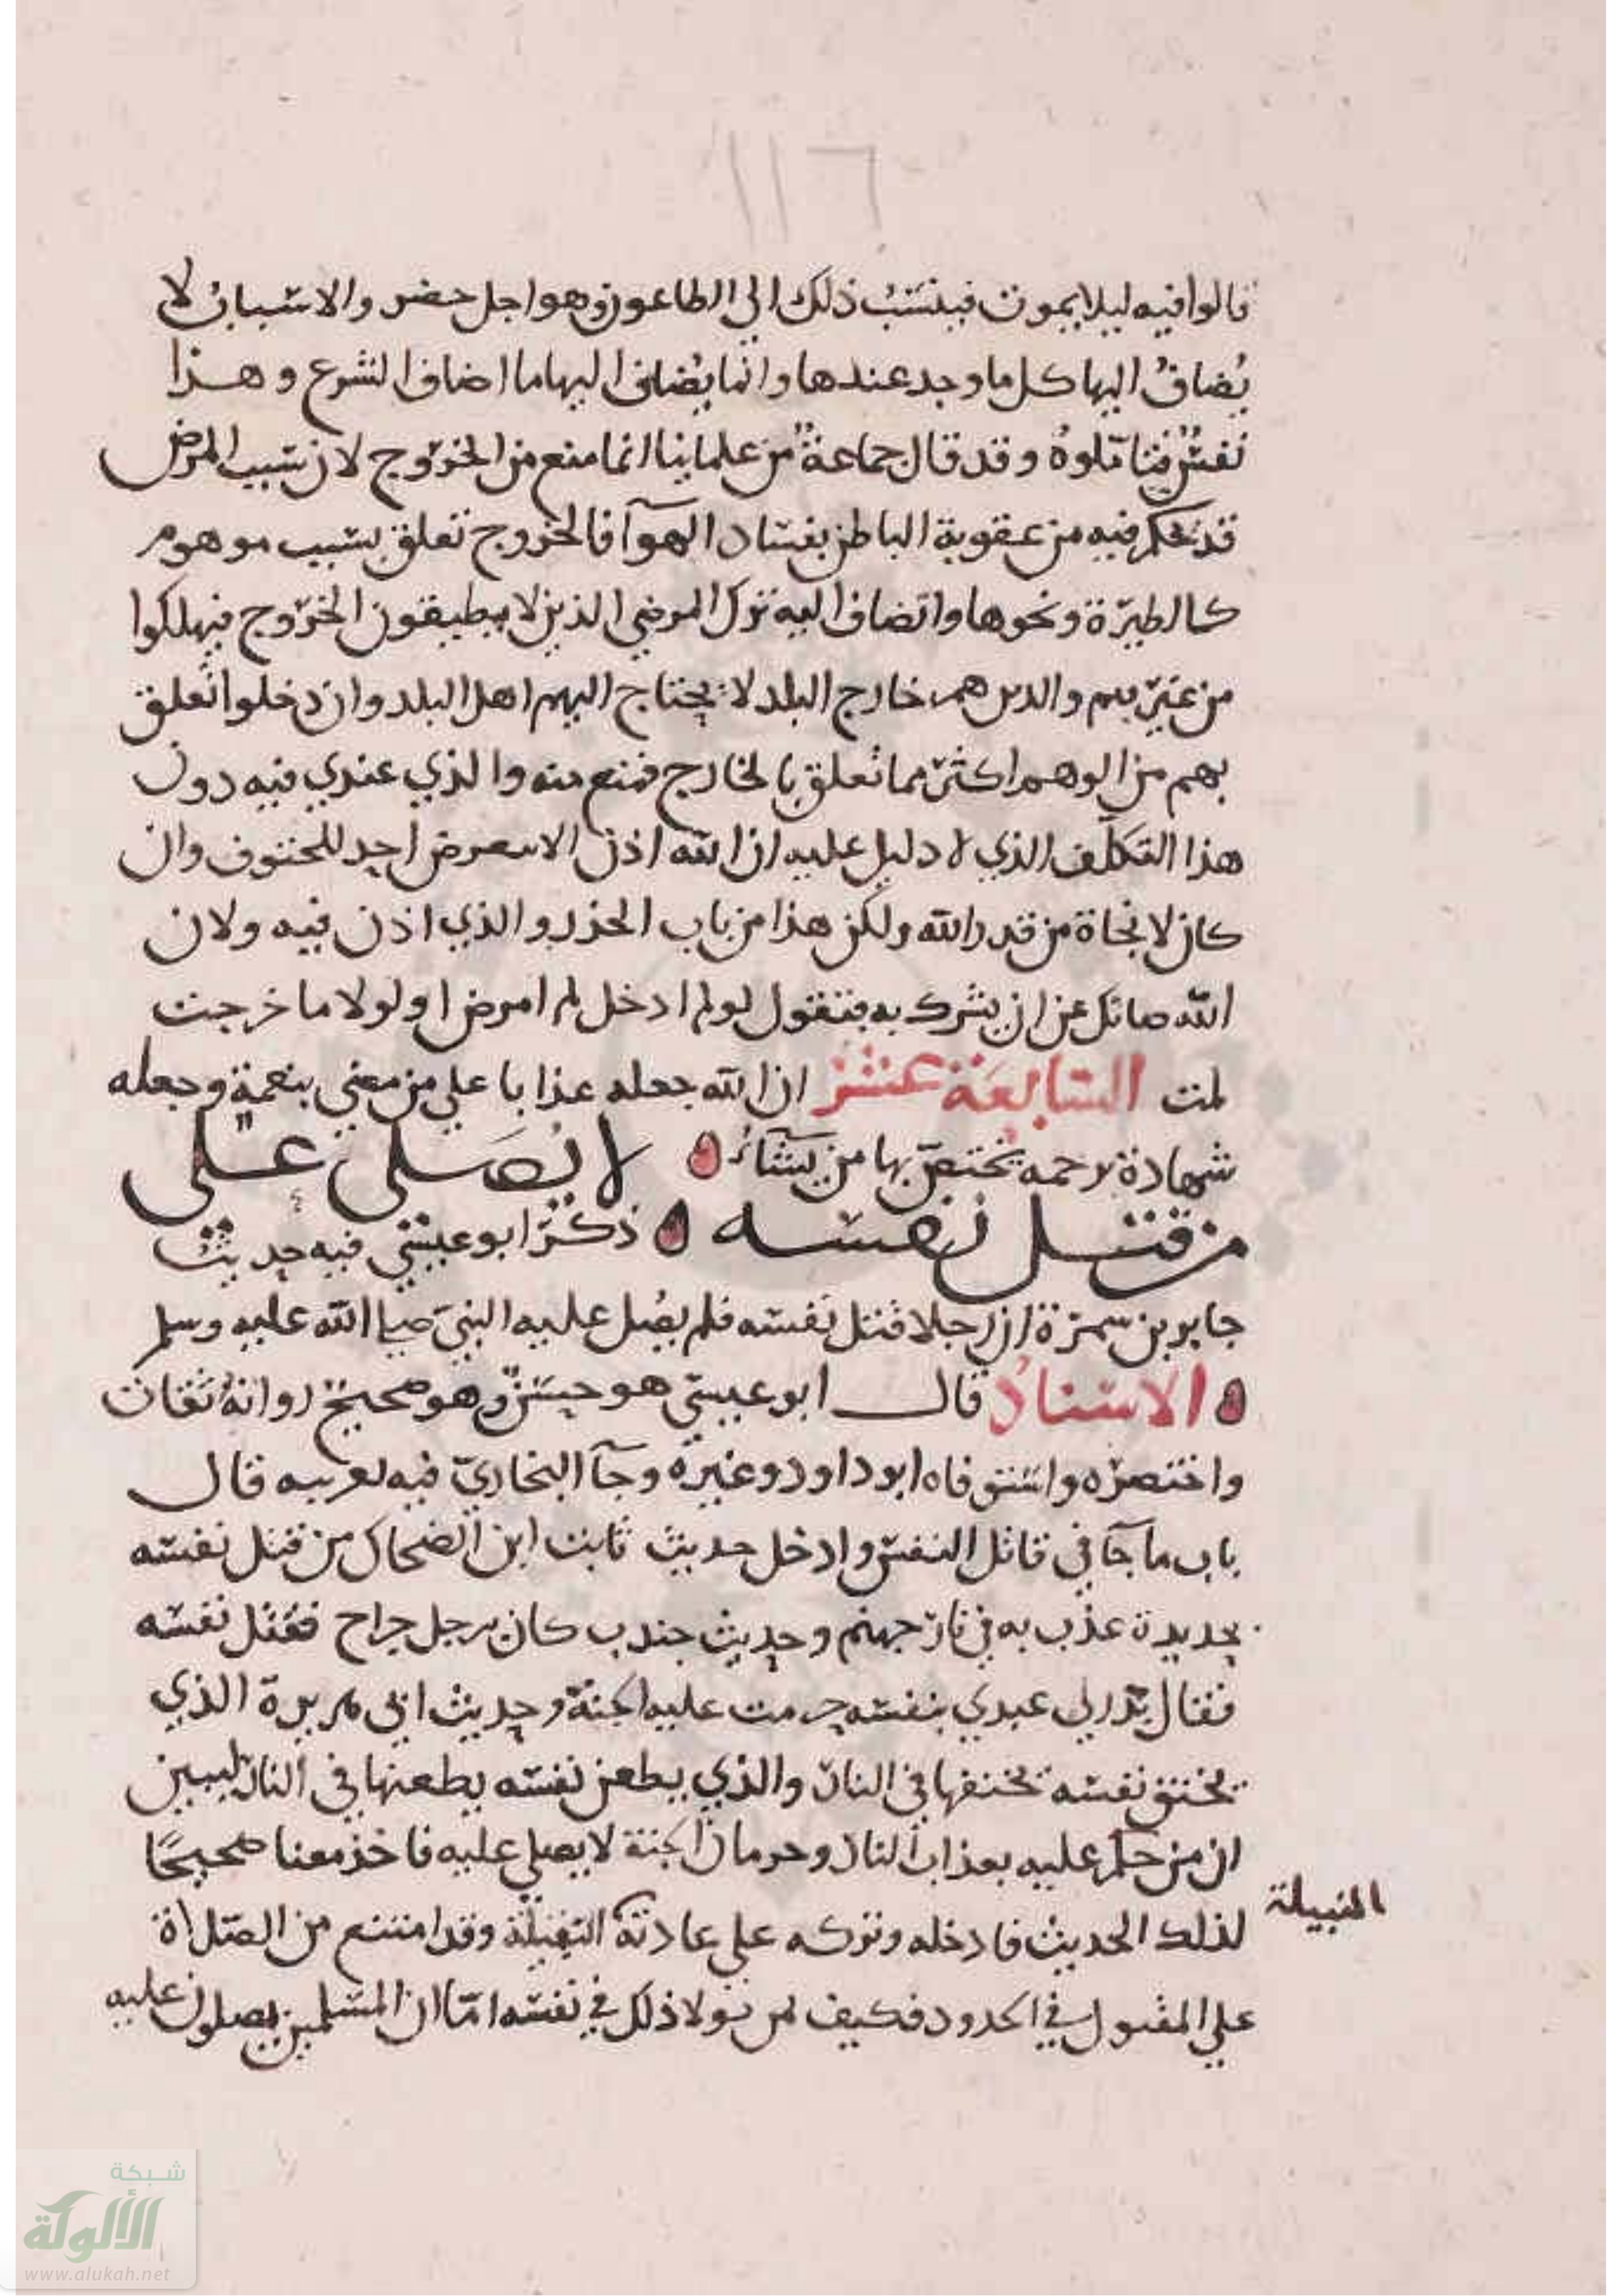 ١١٦
قالوا فيه ليلا يموت فينسب ذلك الي الطاعون وهو اجل حضر والاسباب لا
يضاف اليها كل ما وجد عندها وانما يضاف اليها ما اضاف الشرع وهذا
نفيس فتاملوه وقد قال جماعة من علماينا انما منع من الخروج لان سبب المرض
قد تحكم فيه من عقوبة الباطن بفساد الهوآ فالخروج تعلق بسبب موهوم
كالطيرة ونحوها واتضاف اليه ترك المرضي الذين لا يطيقون الخروج فيهلكوا
من غير بهم والدين هم خارج البلد لا يحتاج اليهم اهل البلد وان دخلوا تعلق
بهم من الوهم اكثر مما تعلق بالخارج فمنع منه والذي عندي فيه دون
هذا التكلف الذي لا دليل عليه ان الله اذن الا يتعرض احد للحتوف وان
كان لا نجاة من قدر الله ولكن هذا من باب الحذر والذي اذن فيه ولان
الله صانك عن ان يشرك به فتقول لو لم ادخل لم امرض او لولا ما خرجت
لمت السابعة عشر ان الله جعله عذابا علي من معني بنعمة وجعله
شهادة رحمه يختص بها من يشاء لا يصلى على
من قتل نفسه ذكر ابو عيسي فيه حديث
جابر بن سمرة ان رجلا قتل نفسه فلم يصل عليه النبي صلي الله عليه وسلم
الاسناد قال ابو عيسي هو حسن وهو صحيح رواته ثقات
واختصره واستوفاه ابو داود وغيره وجآ البخاري فيه لعربيه قال
باب ما جآ في قاتل النفس وادخل حديث ثابت ابن الضحاك من قتل نفسه
بحديدة عذب به في نار جهنم وحديث جندب كان برجل جراح فقتل نفسه
فقال بدرلي عبدي بنفسه حرمت عليه الجنة وحديث ابي هريرة الذي
يخنق نفسه يخنقها في النار والذي يطعن نفسه يطعنها في النار ليبين
ان من حكم عليه بعذاب النار وحرمان الجنة لا يصلي عليه فاخذ معنا صحيحا
لذلك الحديث فادخله وتركه على عادته النبيلة وقد امتنع من الصلاة
المنبيلة
علي المقتول في الحدود فكيف لمن تولا ذلك في نفسه امّا ان المسلمين يصلون عليه
شبكة
الألوكة
www.alukah.net